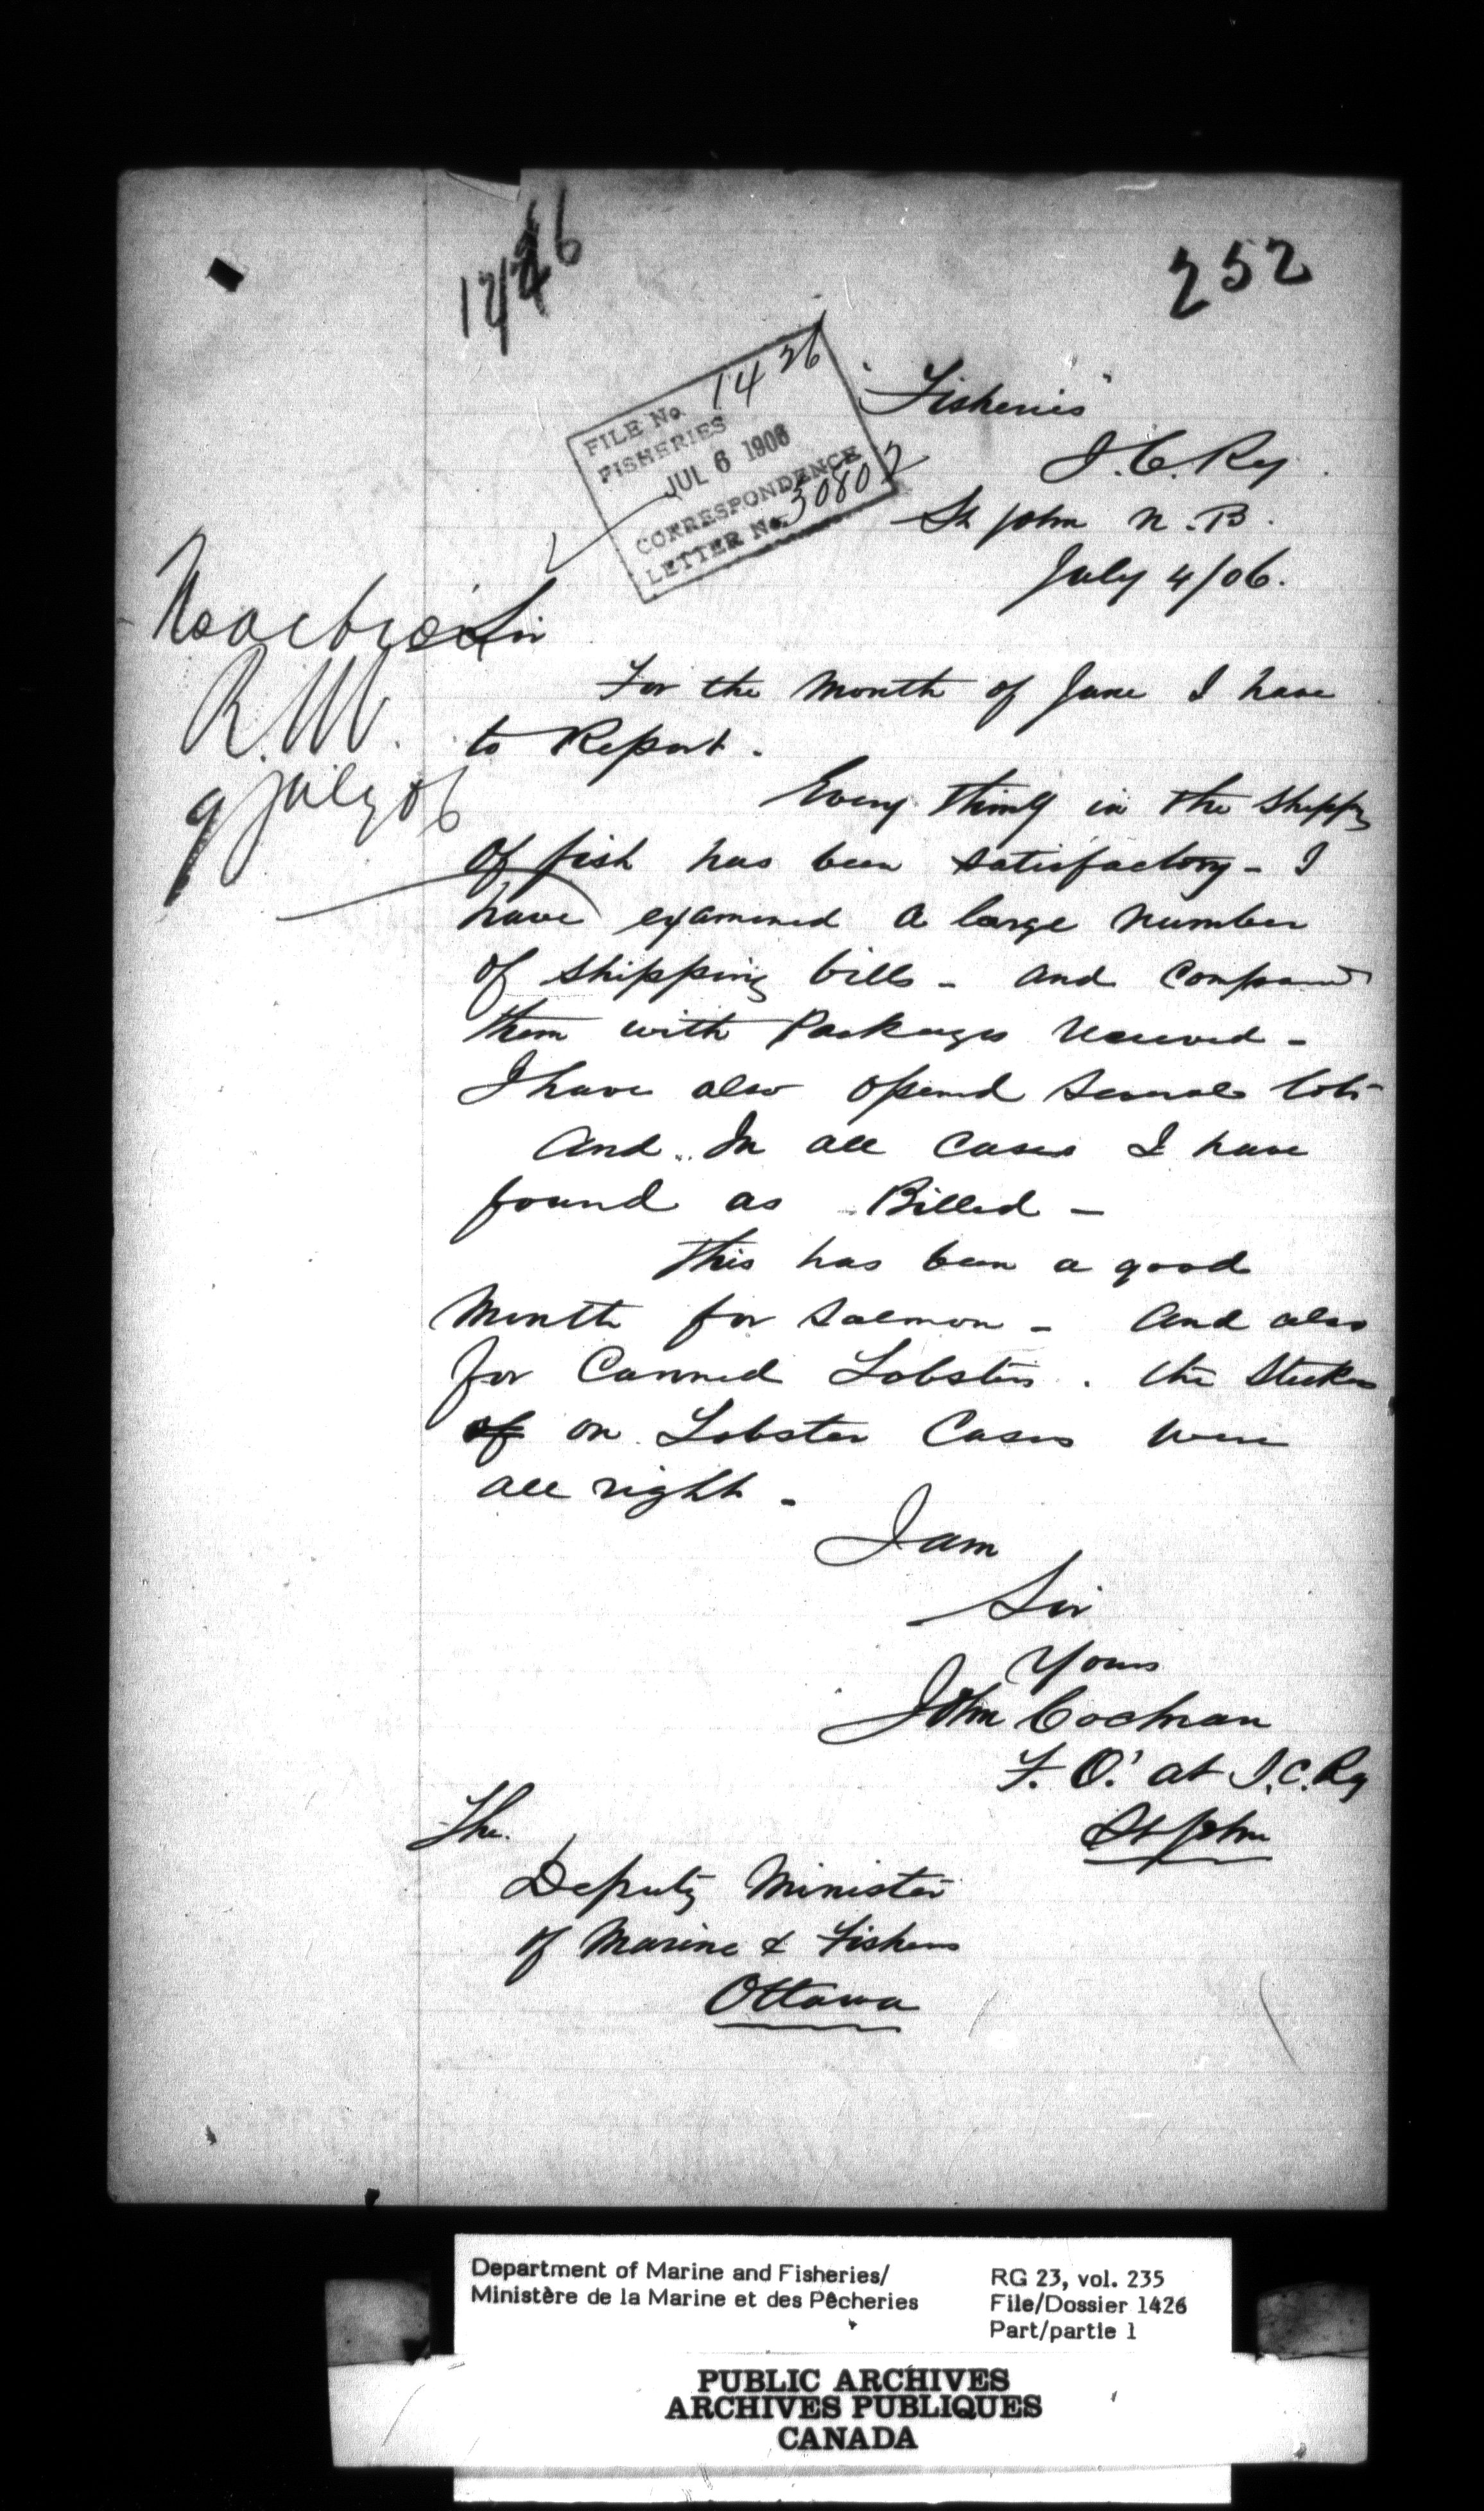 1426
252
FILE No. 1426
FISHERIES
JUL 6 1906
CORRESPONDENCE
LETTER No. 30802
"Fisheries"
I.C.Ry.
St John N.B.
July 4/06.
No action
R.W.
9 July 06
Sir
For the Month of June I have
to Report.
Every thing in the Shippg
of fish has been satisfactory - I
have examined a large number
of shipping bills - and Compared
them with Packages received -
I have also opened several lots
and In all cases I have
found as Billed -
This has been a good
Month for Salmon - and also
for Canned Lobsters. the Stickers
of on Lobster Cases were
all right -
I am
Sir
Yours
John Cochran
F.O. at I.C.Ry
St John
The
Deputy Minister
of Marine & Fisheries
Ottawa
Department of Marine and Fisheries/
Ministère de la Marine et des Pêcheries
RG 23, vol. 235
File/Dossier 1426
Part/partie 1
PUBLIC ARCHIVES
ARCHIVES PUBLIQUES
CANADA